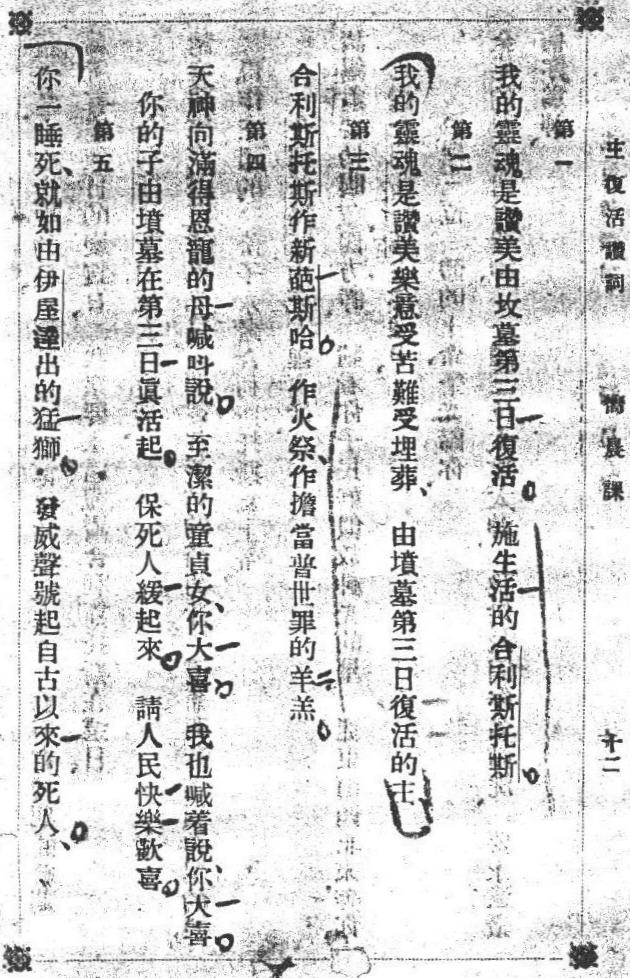 主復活讚詞 嚮晨課 十二
第一
我的靈魂是讚美由坟墓第三日復活。施生活的合利斯托斯。
第二
我的靈魂是讚美樂意受苦難受埋葬、由墳墓第三日復活的主
第三
合利斯托斯作新葩斯哈。作火祭、作擔當普世罪的羊羔。
第四
天神向滿得恩寵的母喊呌說。至潔的童貞女、你大喜。我也喊着說、你大喜。
你的子由墳墓在第三日眞活起。保死人緩起來。請人民快樂歡喜。
第五
你一睡死、就如由伊屋達出的猛獅。發威聲號起自古以來的死人、。